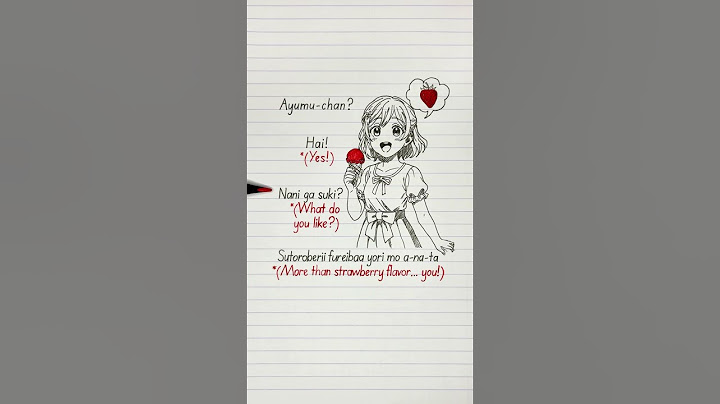 Ayumu-chan?
Hai!
*(Yes!)
Nani ga suki?
*(What do
you like?)
Sutoroberii fureibaa yori mo a-na-ta
*(More than strawberry flavor... you!)